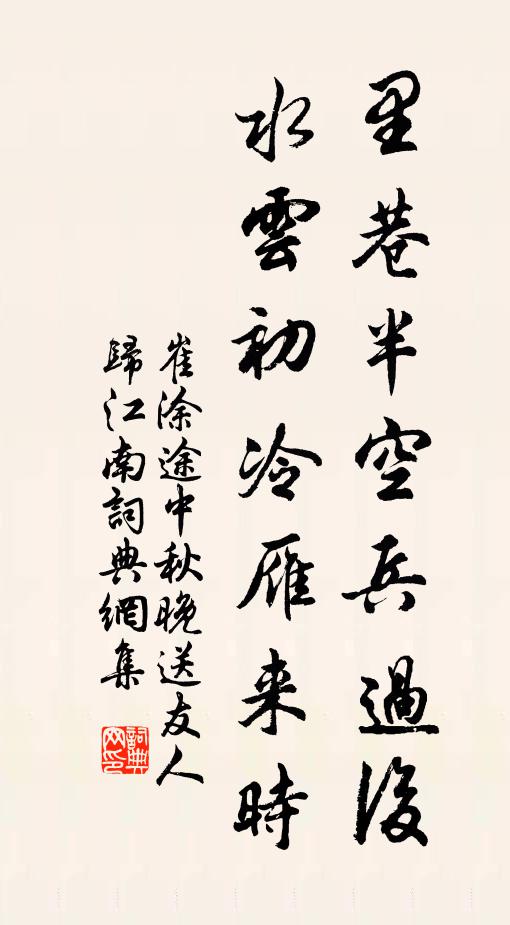 里巷半空兵過後
水雲初冷雁来時
崔涂途中秋晚送友人
歸江南詞典網集
詞典
网印